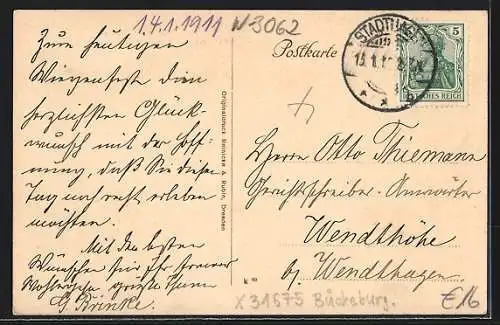 14.1.1911 N-3062
Zum heutigen
Wiegenfeste die
herzlichsten Glück-
wünsche mit der Hoff-
nung, daß Sie diesen
Tag noch recht erleben
möchten.
Mit den besten
Wünschen für Ihr ferneres
Wohlergehen grüßt Ihnen
G. Brinke.
Originaldruck Reinicke & Rubin, Dresden
Postkarte
STADTHAGEN
5
DEUTSCHES REICH
Herrn Otto Thiemann
Gerichtsschreiber-Anwärter
Wendthöhe
b/ Wendthagen.
X 31575 Bückeburg.
€16